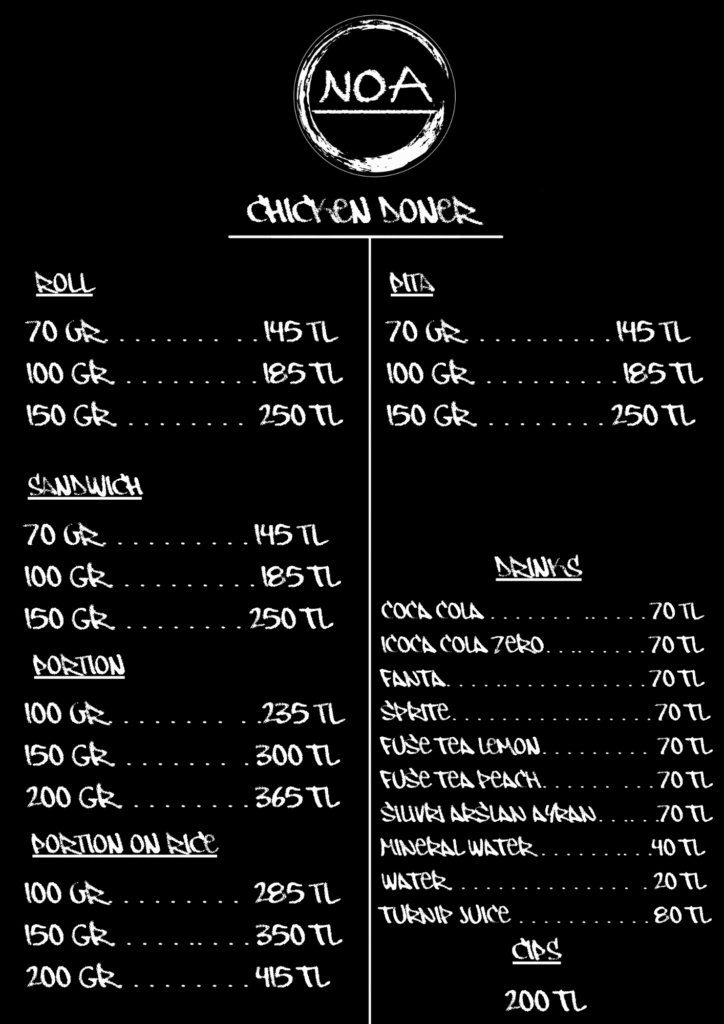 NOA
CHICKEN DONER
ROLL
70 GR. . . . . . . . . .145 TL
100 GR. . . . . . . . . .185 TL
150 GR. . . . . . . . . 250 TL
SANDWICH
70 GR. . . . . . . . . .145 TL
100 GR. . . . . . . . . .185 TL
150 GR. . . . . . . . . 250 TL
PORTION
100 GR. . . . . . . . . .235 TL
150 GR. . . . . . . . .300 TL
200 GR. . . . . . . . .365 TL
PORTION ON RICE
100 GR. . . . . . . . . 285 TL
150 GR. . . . . . . . . .350 TL
200 GR. . . . . . . . . 415 TL
PITA
70 GR. . . . . . . . . .145 TL
100 GR. . . . . . . . . .185 TL
150 GR. . . . . . . . . 250 TL
DRINKS
COCA COLA . . . . . . . .. . . . . .70 TL
ICOCA COLA ZERO. . . .. . . . . .70 TL
FANTA. . . . . . . . . . . . . . . . .70 TL
SPRITE. . . . . . . . . . .. . . . . .70 TL
FUSE TEA LEMON. . . . . . . . . 70 TL
FUSE TEA PEACH. . . . . . . . . 70 TL
SILIVRI ARSLAN AYRAN. . . .. . .70 TL
MINERAL WATER. . . . . . .. . .40 TL
WATER. . . . . . . . . . . . . . . . . 20 TL
TURNIP JUICE . . . . . . . . . . . 80 TL
CIPS
200 TL